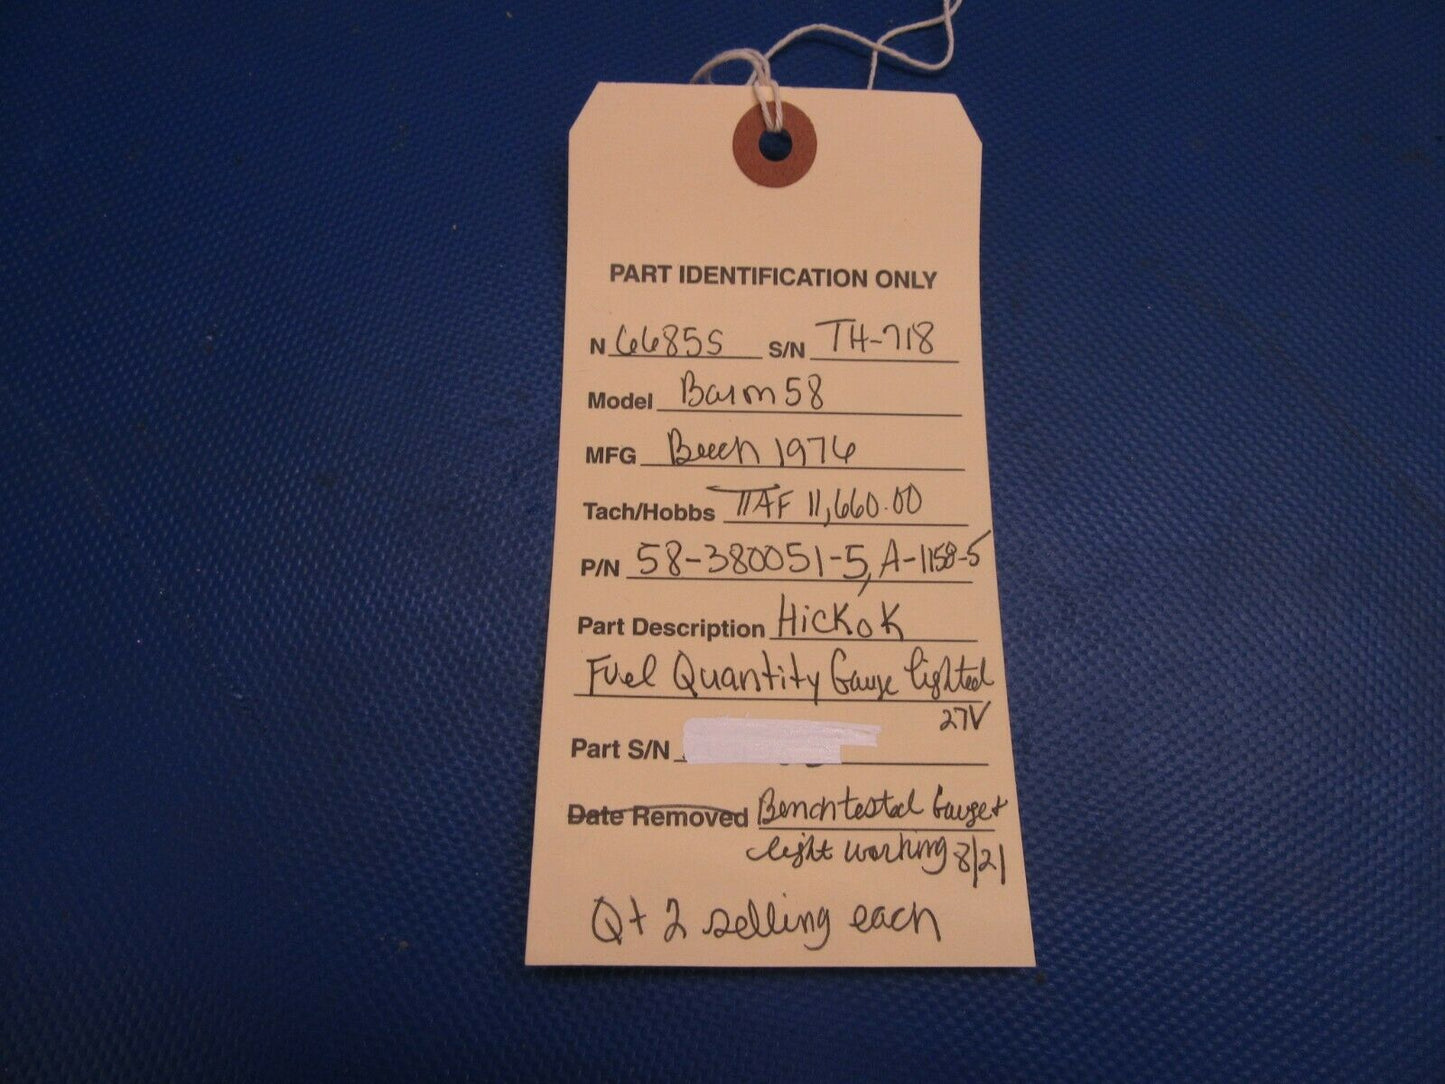 PART IDENTIFICATION ONLY
N 6685S S/N TH-718
Model Baron 58
MFG Beech 1976
Tach/Hobbs TTAF 11,660.00
P/N 58-380051-5, A-1158-5
Part Description Hickok
Fuel Quantity Gauge lighted
27V
Part S/N
Date Removed Benchtested Gauge +
light working 8/21
Qt 2 selling each